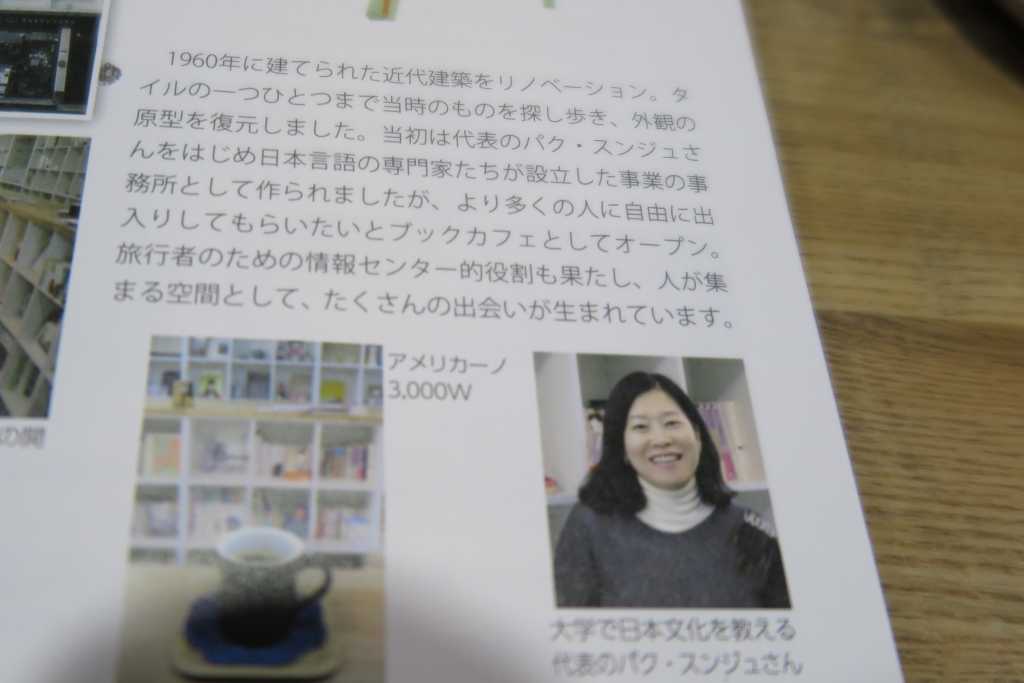 1960年に建てられた近代建築をリノベーション。タ
イルの一つひとつまで当時のものを探し歩き、外観の
原型を復元しました。当初は代表のパク・スンジュさ
んをはじめ日本言語の専門家たちが設立した事業の事
務所として作られましたが、より多くの人に自由に出
入りしてもらいたいとブックカフェとしてオープン。
旅行者のための情報センター的役割も果たし、人が集
まる空間として、たくさんの出会いが生まれています。
アメリカーノ
3,000W
大学で日本文化を教える
代表のパク・スンジュさん